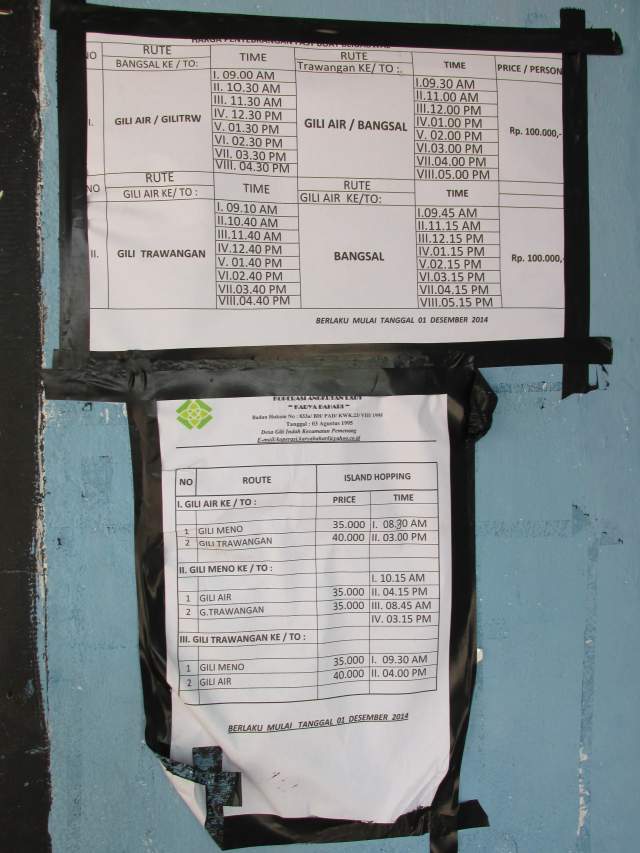 HARGA PENYEBRANGAN FAST BOAT
NO ROUTE TIME ROUTE TIME PRICE / PERSON
BANGSAL KE / TO: Trawangan KE / TO :
I. GILI AIR / GILITRW I. 09.00 AM GILI AIR / BANGSAL I.09.30 AM Rp. 100.000,-
II. 10.30 AM II.11.00 AM
III. 11.30 AM III.12.00 PM
IV. 12.30 PM IV.01.00 PM
V. 01.30 PM V. 02.00 PM
VI. 02.30 PM VI.03.00 PM
VII. 03.30 PM VII.04.00 PM
VIII. 04.30 PM VIII.05.00 PM
NO ROUTE TIME ROUTE TIME
GILI AIR KE/ TO : GILI AIR KE/TO:
II. GILI TRAWANGAN I. 09.10 AM BANGSAL I.09.45 AM Rp. 100.000,-
II.10.40 AM II.11.15 AM
III.11.40 AM III.12.15 PM
IV.12.40 PM IV.01.15 PM
V. 01.40 PM V.02.15 PM
VI.02.40 PM VI.03.15 PM
VII.03.40 PM VII.04.15 PM
VIII.04.40 PM VIII.05.15 PM
BERLAKU MULAI TANGGAL 01 DESEMBER 2014
KOPERASI ANGKUTAN LAUT
" KARYA BAHARI "
Badan Hukum No : PAD/ KWK.23/VIII/ 1995
Tanggal : 03 Agustus 1995
Desa Gili Indah Kecamatan Pemenang
E-mail:koperasi.karyabahari@yahoo.co.id
NO ROUTE ISLAND HOPPING
PRICE TIME
I. GILI AIR KE / TO :
1 GILI MENO 35.000 I. 08.30 AM
2 GILI TRAWANGAN 40.000 II. 03.00 PM
II. GILI MENO KE / TO :
I. 10.15 AM
1 GILI AIR 35.000 II. 04.15 PM
2 G.TRAWANGAN 35.000 III. 08.45 AM
IV. 03.15 PM
III. GILI TRAWANGAN KE / TO :
1 GILI MENO 35.000 I. 09.30 AM
2 GILI AIR 40.000 II. 04.00 PM
BERLAKU MULAI TANGGAL 01 DESEMBER 2014